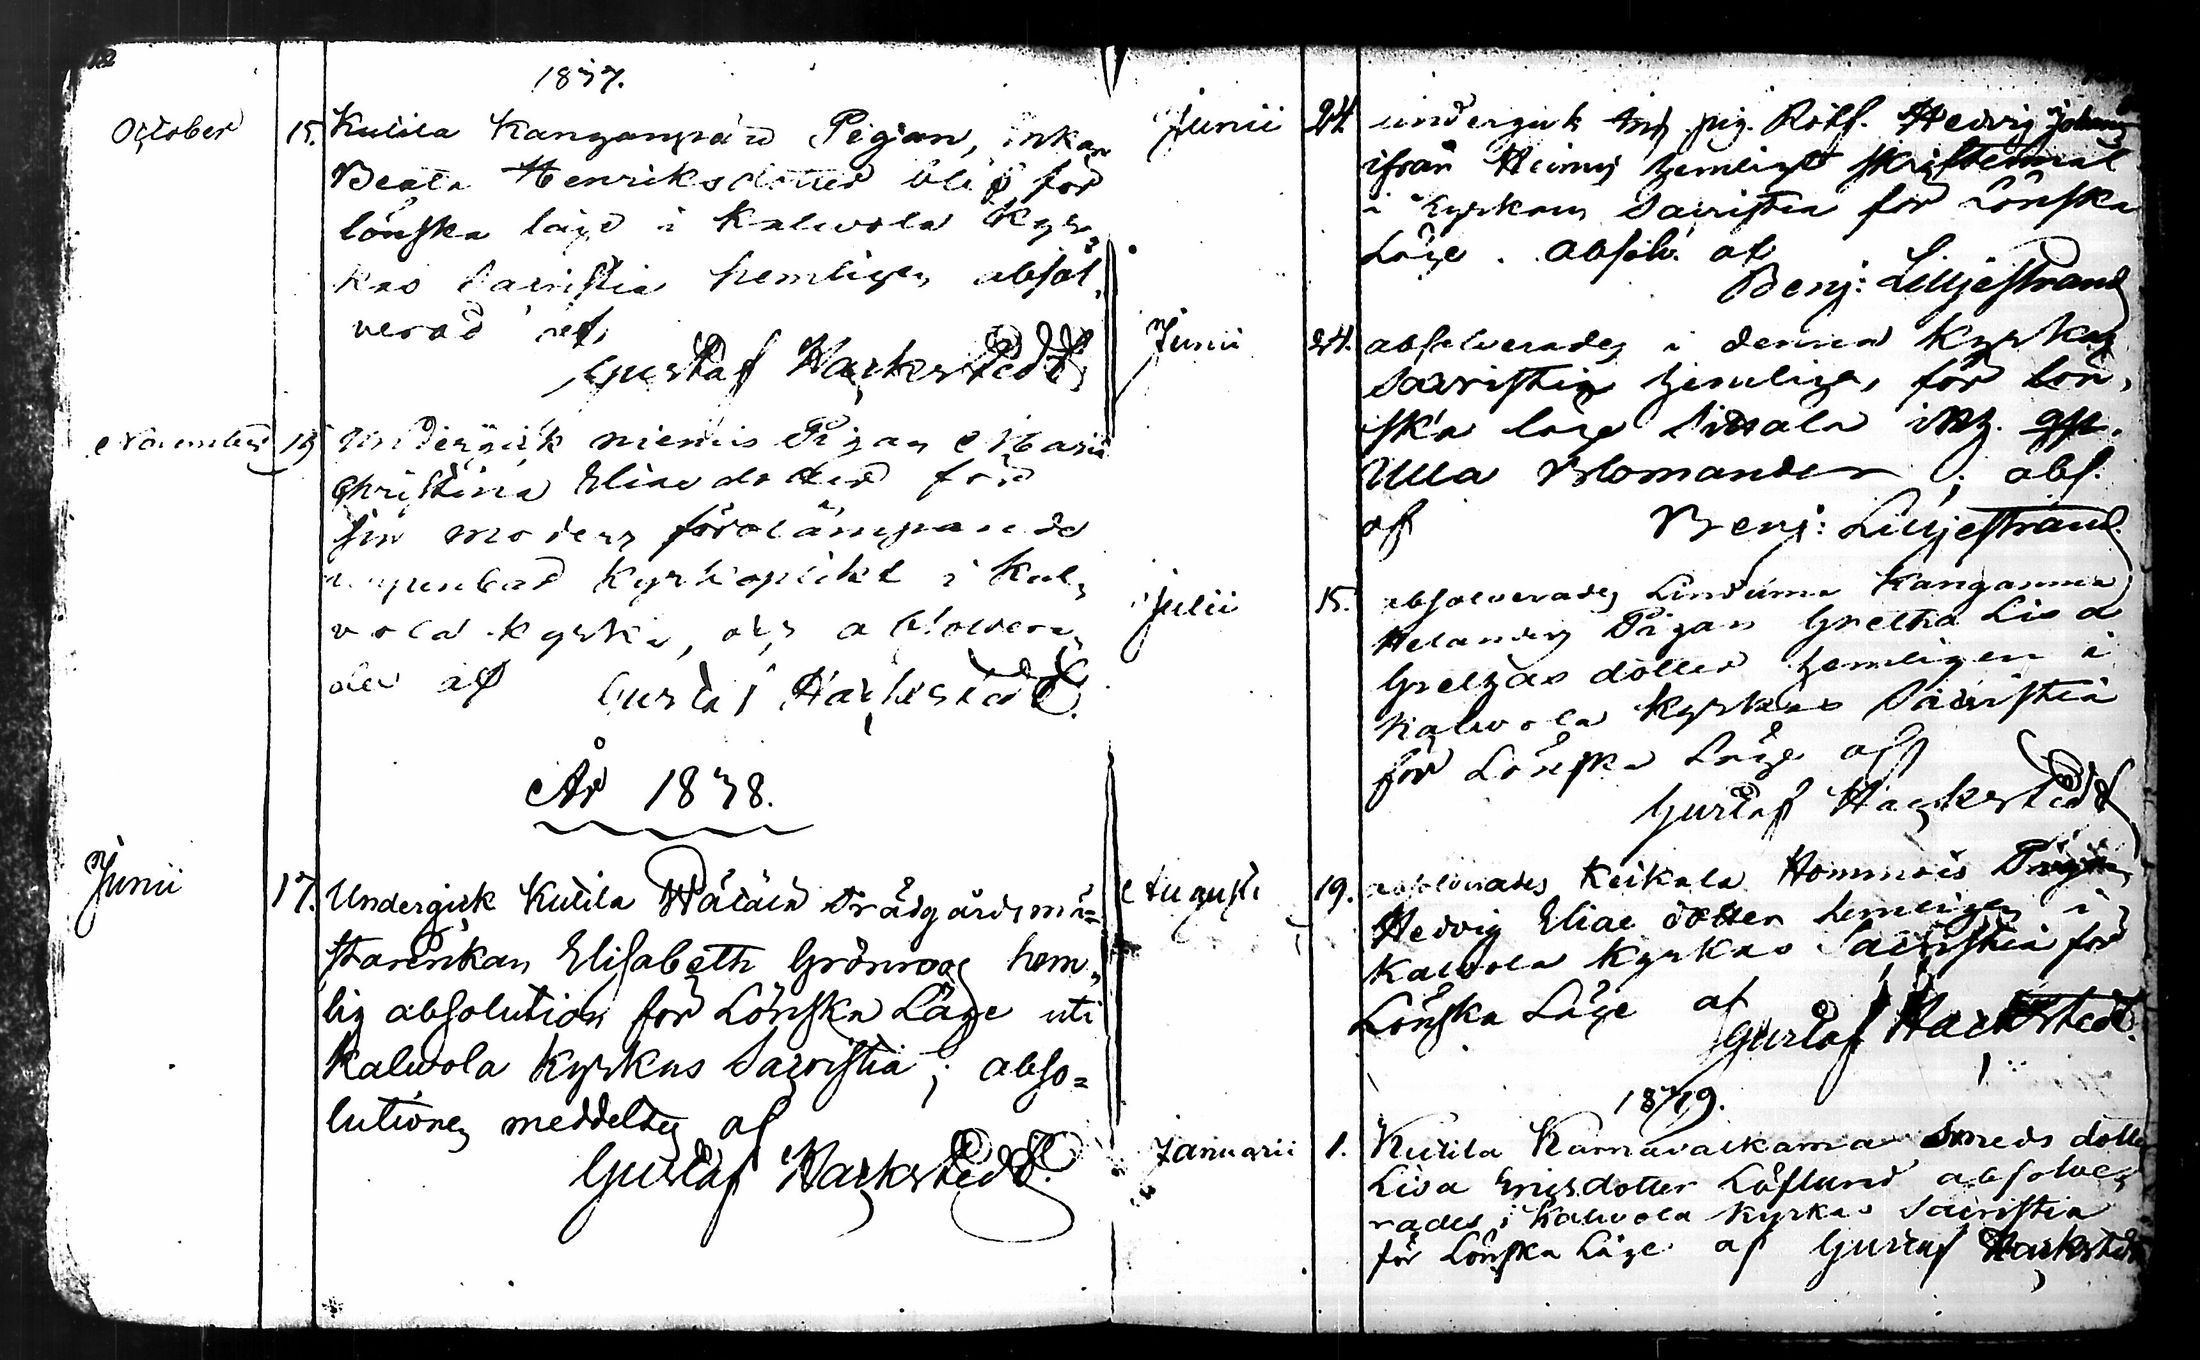 1837.
October 15. Kutila Kanganpää Pigan, Enkan
Beata Henriksdotter blef för
lönska läge i Kalwola Kyr,
kas Sacristia hemligen absol,
verad af
Gustaf Hackstedt
November 19 Undergick niemis Pigan Maria
Christina Eliaedotter för
sin moders förolämpande
uppenbar Kyrkoplikt i Kal,
vola Kyrka, och absolvera,
des af Gustaf Hackstedt.
År 1838.
Junii 17. Undergick Kutila Trädgårdsmä=
starinkan Elisabeth Grönroos hem,
lig absolution för Lönska Läge uti
Kalwola Kyrkas Sacristia; abso=
lutionen meddeltes af
Gustaf Hackstedt.
Junii 24 undergick pig. Hedvig Johans
ifrån hemligt skriftermål
i Kyrkans Sacristia för Lönska
Läge. Absolv. af
Benj: Lilljestrand
Junii 24. absolverades i denna Kyrkas
Sacristia hemligen, för lön,
ska läge
Ulla Blomander; abs.
af Benj: Lilljestrand.
Julii 15. absolverades Kanganmaa
Helanders Pigan Gretha Lisa
dotter hemligen i
Kalwola Kyrkas Sacristia
för Lönska Läge af
Gustaf Hackstedt
Augusti 19. absolverades Keikala Hommois Pigan
Hedvig Eliae dotter hemligen i
Kalwola Kyrkas Sacristia för
Lönska Läge af
Gustaf Hackstedt.
1839.
Januarii 1. Kutila Smeds dotter
Lisa Ericsdotter Löflund absolve,
rades i Kalwola Kyrkas Sacristia
för Lönska Läge af Gustaf Hackstedt